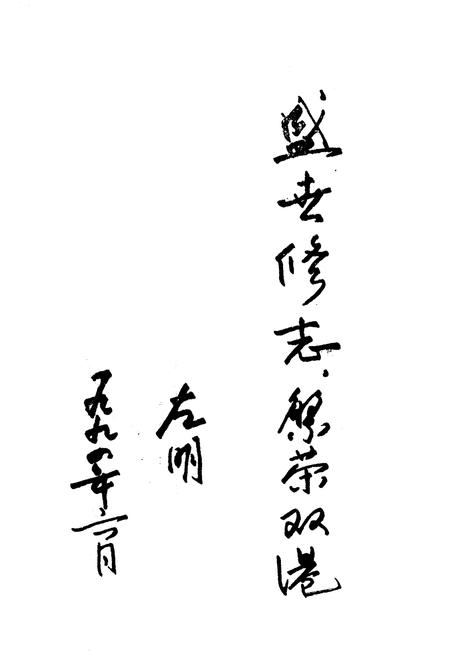 盛世修志，繁荣双港
左明
一九九四年六月